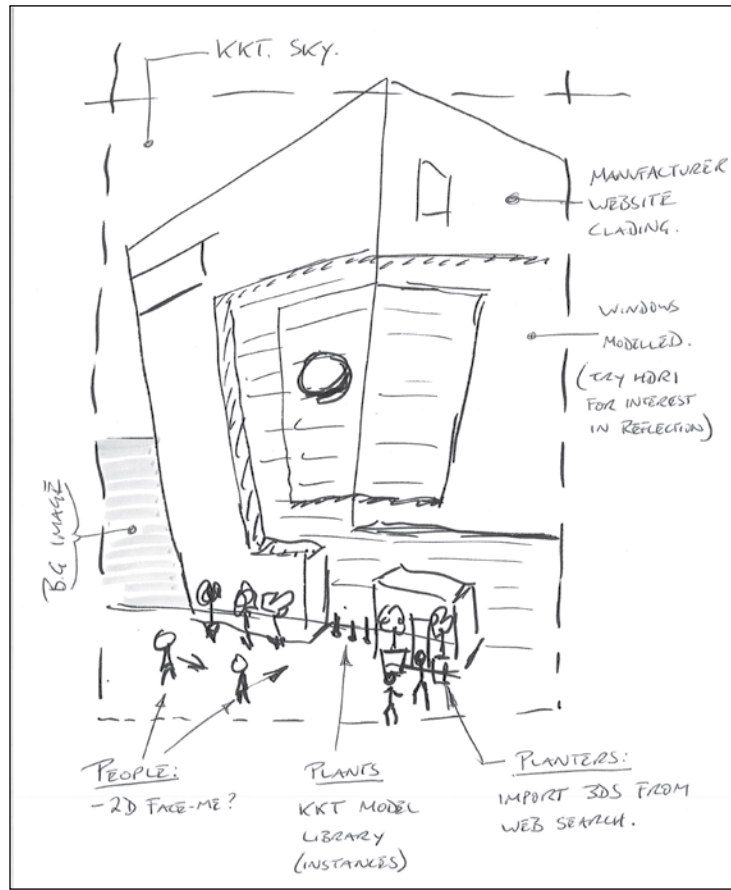 KKT. SKY.
MANUFACTURER
WEBSITE
CLADING.
WINDOWS
MODELLED.
(TRY HDRI
FOR INTEREST
IN REFLECTION)
B.G IMAGE
PEOPLE:
- 2D FACE-ME?
PLANTS
KKT MODEL
LIBRARY
(INSTANCES)
PLANTERS:
IMPORT 3DS FROM
WEB SEARCH.